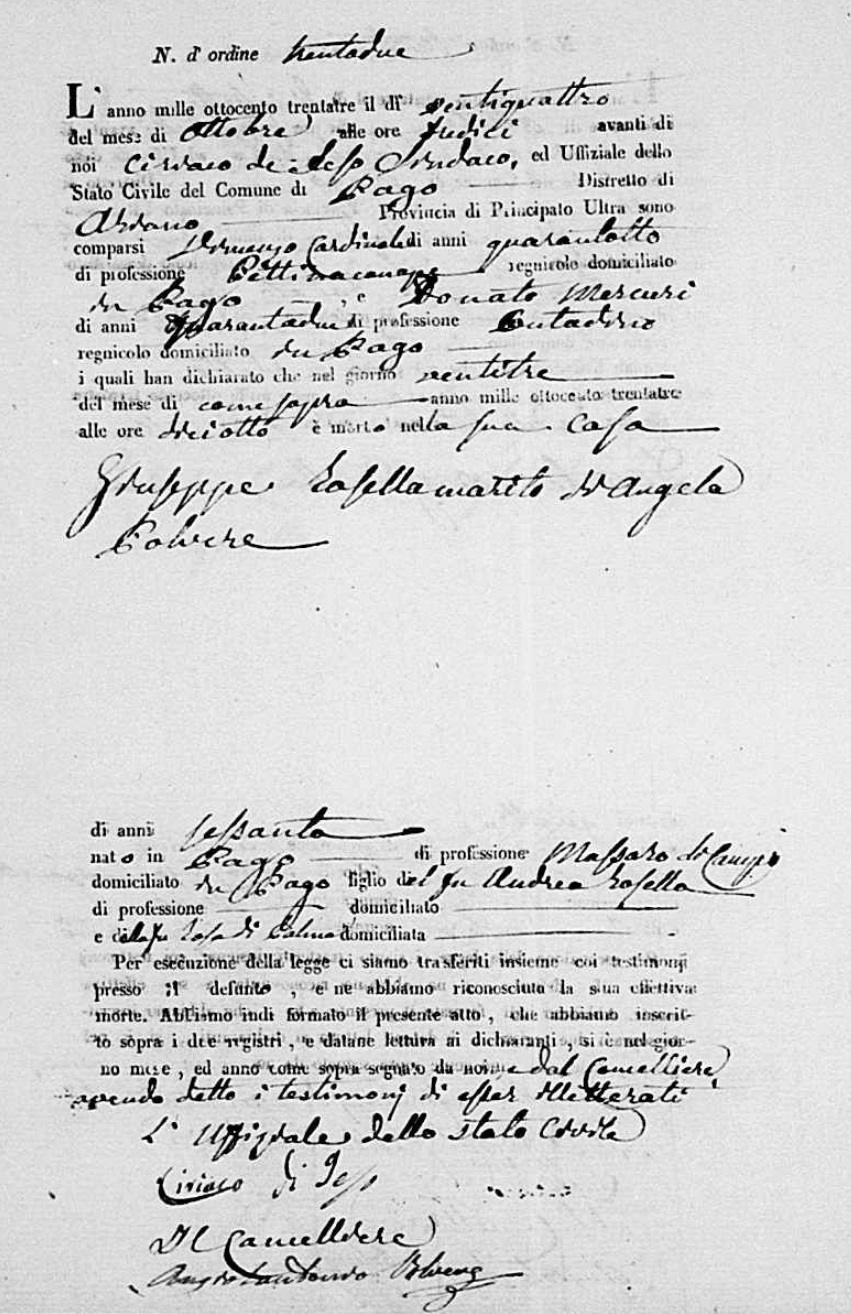 N. d' ordine trentadue
L' anno mille ottocento trentatre il dì ventiquattro
del mese di Ottobre alle ore tredici avanti di
noi Ciriaco de Sindaco, ed Uffiziale dello
Stato Civile del Comune di Pago Distretto di
Ariano Provincia di Principato Ultra sono
comparsi Cardinale di anni quarantotto
di professione Pettinacanape regnicolo domiciliato
in Pago, e Donato Mercuri
di anni quarantadue di professione Contadino
regnicolo domiciliato in Pago
i quali han dichiarato che nel giorno ventitre
del mese di come sopra anno mille ottocento trentatre
alle ore diciotto è morto nella sua casa
Giuseppe Rosella marito di Angela
Polvere
di anni sessanta
nato in Pago di professione Massaro di Campi
domiciliato in Pago figlio del fu Andrea Rosella
di professione domiciliato
e della fu Rosa di Palma domiciliata
Per esecuzione della legge ci siamo trasferiti insieme coi testimonj
presso il defunto, e ne abbiamo riconosciuta la sua effettiva
morte. Abbiamo indi formato il presente atto, che abbiamo inscrit-
to sopra i due registri, e datane lettura ai dichiaranti, si è nel gior-
no mese, ed anno come sopra segnato da noi, e dal Cancelliere
avendo detto i testimonj di esser illetterati
L' Uffiziale dello stato Civile
Ciriaco di
Il Cancelliere